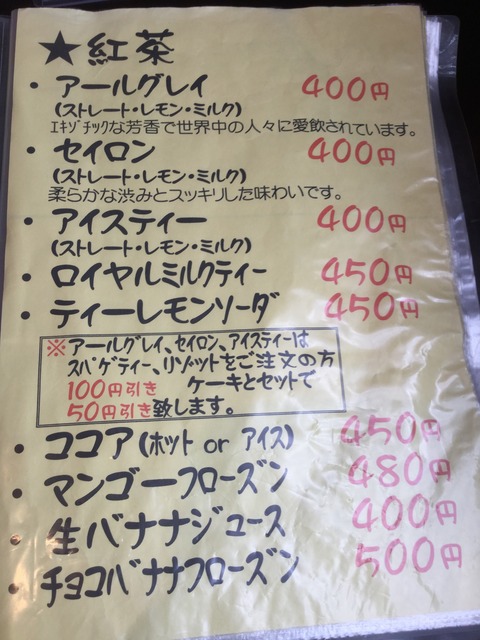 ★紅茶
・アールグレイ 400円
(ストレート・レモン・ミルク)
ｴｷｿﾞﾁｯｸな芳香で世界中の人々に愛飲されています。
・セイロン 400円
(ストレート・レモン・ミルク)
柔らかな渋みとスッキリした味わいです。
・アイスティー 400円
(ストレート・レモン・ミルク)
・ロイヤルミルクティー 450円
・ティーレモンソーダ 450円
※アールグレイ、セイロン、アイスティーは
スパゲティー、リゾットをご注文の方
100円引き ケーキとセットで
50円引き致します。
・ココア(ホット or アイス) 450円
・マンゴーフローズン 480円
・生バナナジュース 400円
・チョコバナナフローズン 500円